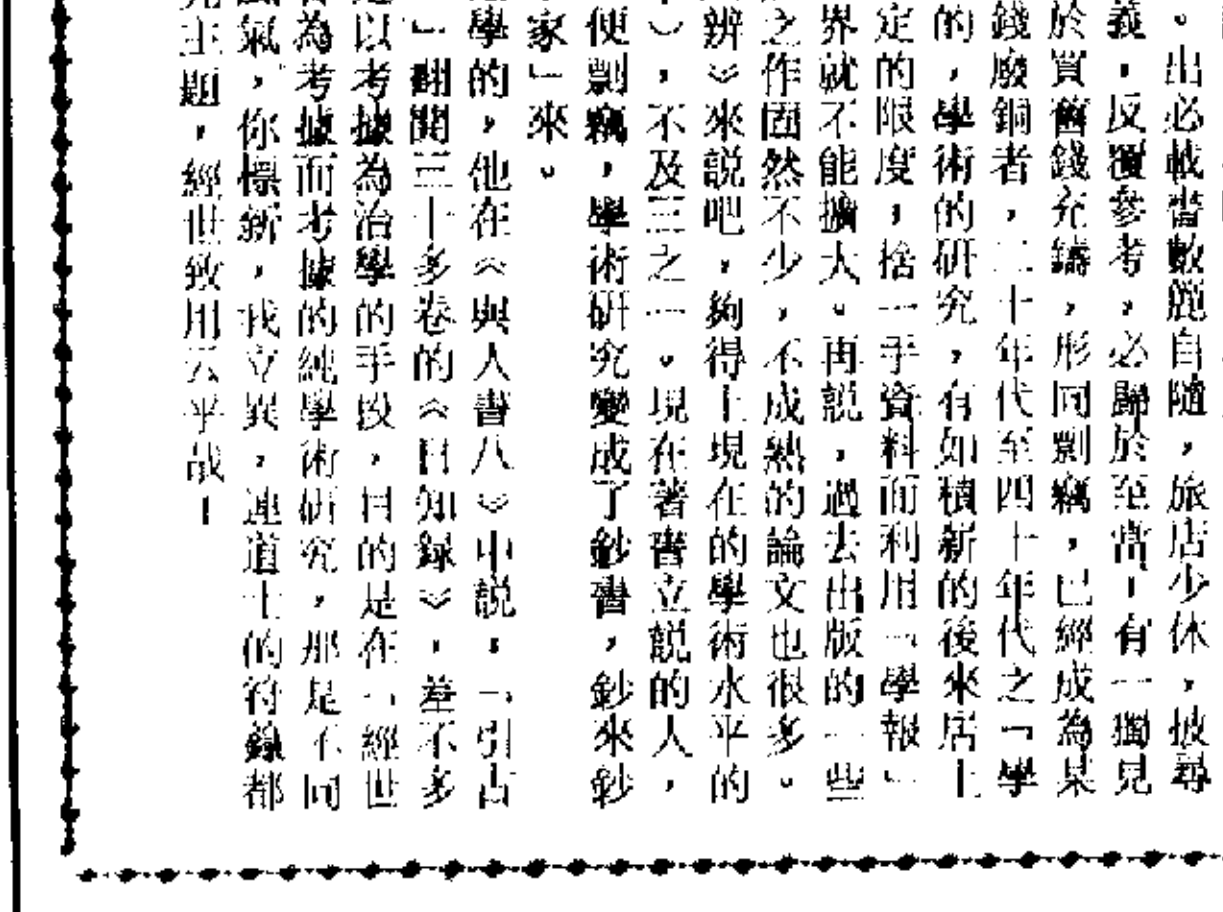 。出必載書數簏自隨，旅店少休，披尋
義，反覆參考，必歸於至當；有一獨見
於買舊錢充鑄，形同剽竊，已經成為某
錢廢銅者，二十年代至四十年代之「學
的，學術的研究，有如積新的後來居上
定的限度，捨一手資料而利用「學報」
界就不能擴大。再説，過去出版的一些
之作固然不少，不成熟的論文也很多。
辨》來説吧，夠得上現在的學術水平的
》，不及三之一。現在著書立説的人，
便剽竊，學術研究變成了鈔書，鈔來鈔
家」來。
學的，他在《與人書八》中説：「引古
」翻開三十多卷的《日知録》，差不多
以考據為治學的手段，目的是在「經世
為考據而考據的純學術研究，那是不同
氣，你標新，我立異，連道士的符籙都
主題，經世致用云乎哉！